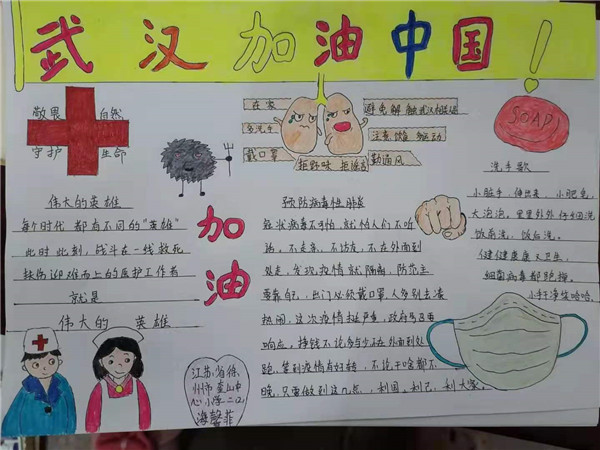 武汉加油中国！
敬畏 自然
守护 生命
在家
多洗手
戴口罩
拒野味 拒谣言
勤通风
注意饮食 多运动
SOAP
洗手歌
小脏手，伸出来，小肥皂，
大泡泡，里里外外仔细洗
饭前洗，饭后洗。
健健康康又卫生，
细菌病毒都跑掉。
小手净笑哈哈。
伟大的英雄
每个时代 都有不同的“英雄”
此时此刻，战斗在一线救死
扶伤迎难而上的医护工作者
就是
伟大的 英雄
加
油
预防病毒性肺炎
冠状病毒不可怕，就怕人们不听
话。不走亲，不访友，不在外面到
处走，发现疫情就隔离，防范主
要靠自己，出门必须戴口罩人多别去凑
热闹，这次疫情挺严重，政府号召要
响应。挣钱不论多与少不在外面到处
跑，等到疫情有好转，不论干啥都不
晚，只要做到这几点，利国，利己，利大家。
江苏省徐
州市奎山中
心小学二(2)
海馨菲